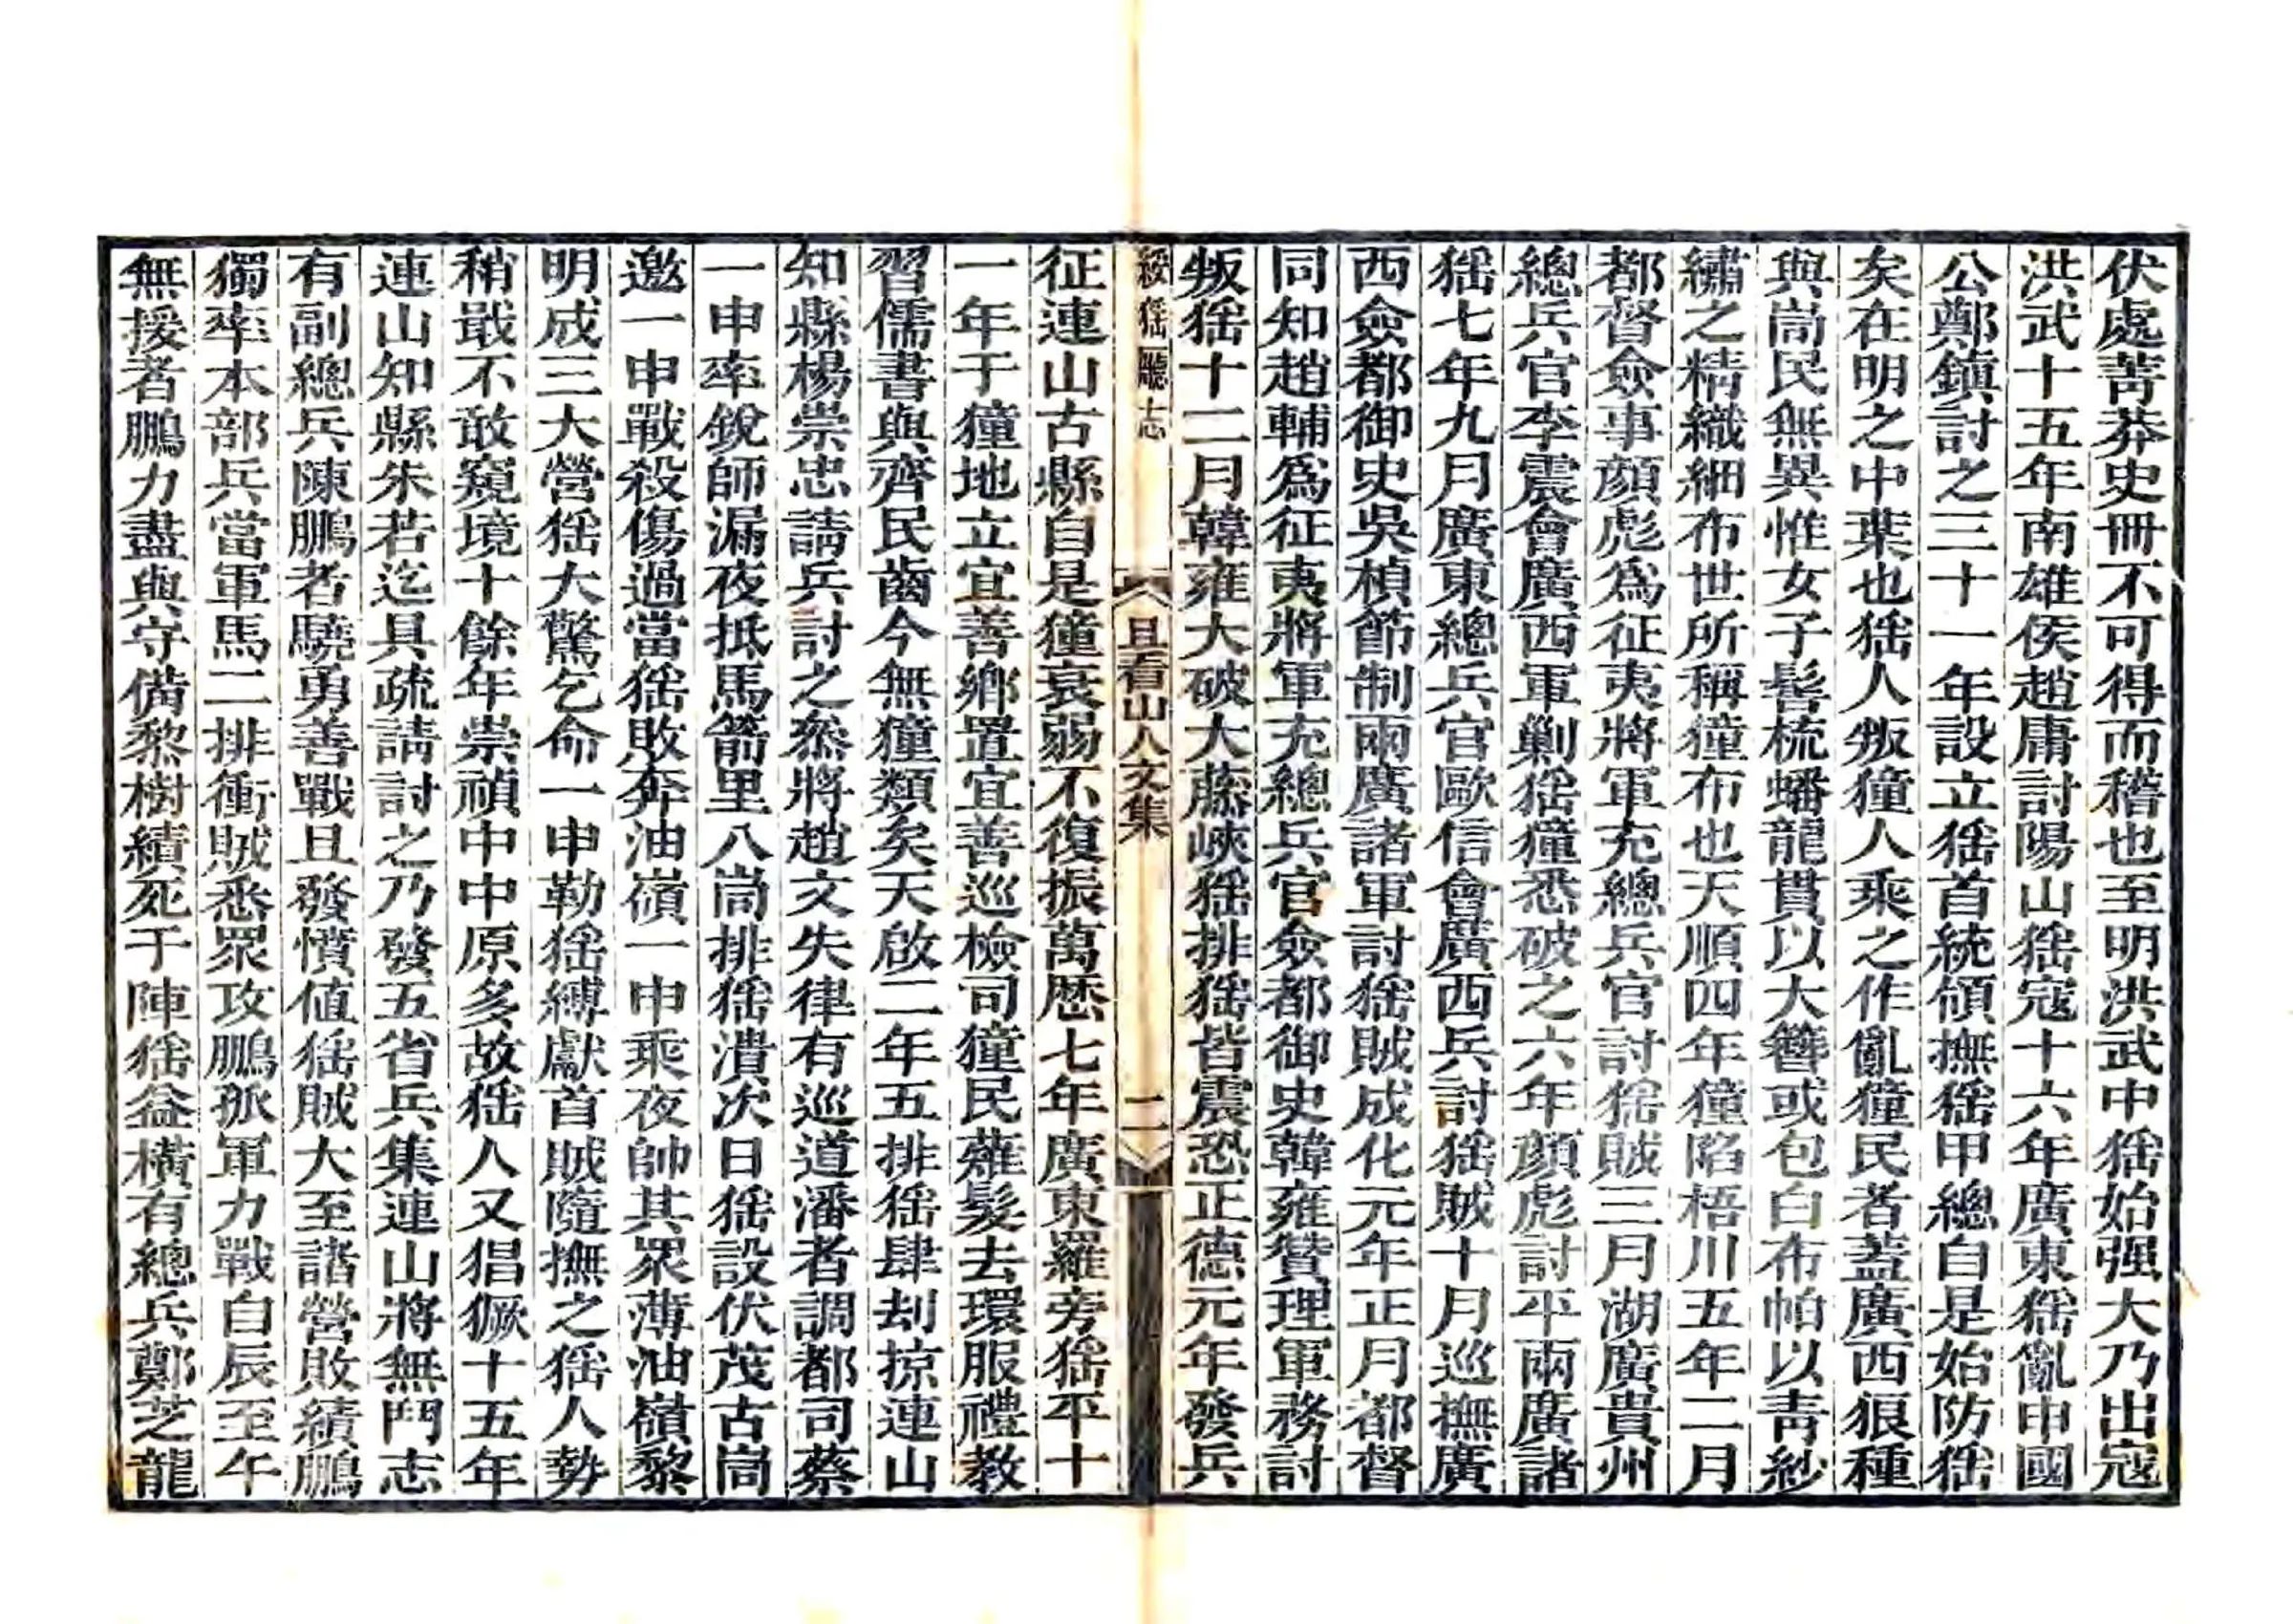 伏處菁莽史冊不可得而稽也至明洪武中猺始强大乃出寇
洪武十五年南雄侯趙庸討陽山猺寇十六年廣東猺亂申國
公鄭鎮討之三十一年設立猺首統領撫猺甲總自是始防猺
矣在明之中葉也猺人叛獞人乘之作亂獞民者葢廣西狼種
與崗民無異惟女子髻梳蟠龍貫以大簪或包白布帕以青紗
繡之精織細布世所稱獞布也天順四年獞陷梧川五年二月
都督僉事顏彪爲征夷將軍充總兵官討猺賊三月湖廣貴州
總兵官李震會廣西軍剿猺獞悉破之六年顏彪討平兩廣諸
猺七年九月廣東總兵官歐信會廣西兵討猺賊十月巡撫廣
西僉都御史吳楨節制兩廣諸軍討猺賊成化元年正月都督
同知趙輔爲征夷將軍充總兵官僉都御史韓雍贊理軍務討
叛猺十二月韓雍大破大藤峽猺排猺皆震恐正德元年發兵
綏猺廳志
且看山人文集
二
征連山古縣自是獞衰弱不復振萬歷七年廣東羅旁猺平十
一年于獞地立宜善鄉置宜善巡檢司獞民薙髮去環服禮教
習儒書與齊民齒今無獞類矣天啟二年五排猺肆刦掠連山
知縣楊崇忠請兵討之叅將趙文失律有巡道潘者調都司蔡
一申率銳師漏夜抵馬箭里八崗排猺潰次日猺設伏茂古崗
邀一申戰殺傷過當猺敗奔油嶺一申乘夜帥其眾薄油嶺黎
明成三大營猺大驚乞命一申勒猺縛獻首賊隨撫之猺人勢
稍戢不敢窺境十餘年崇禎中中原多故猺人又猖獗十五年
連山知縣朱若迄具疏請討之乃發五省兵集連山將無鬥志
有副總兵陳鵬者驍勇善戰且發憤值猺賊大至諸營敗績鵬
獨率本部兵當軍馬二排衝賊悉眾攻鵬孤軍力戰自辰至午
無援者鵬力盡與守備黎樹績死于陣猺益橫有總兵鄭芝龍